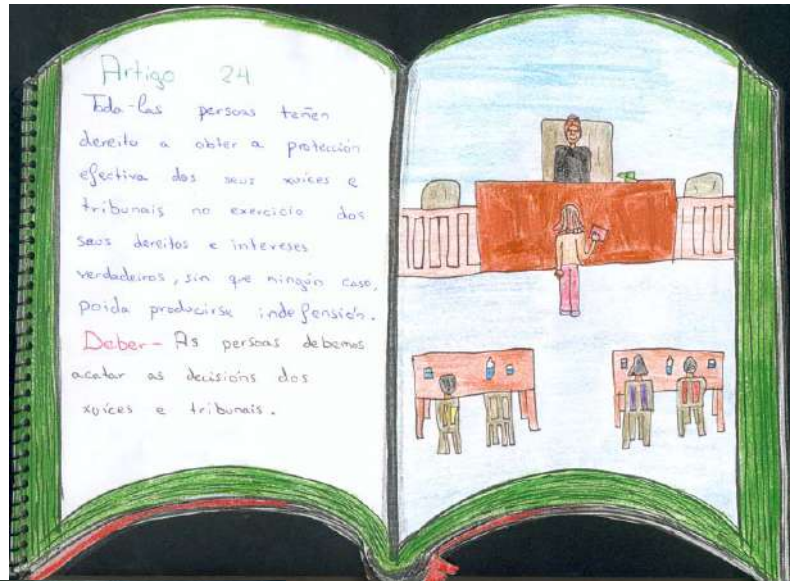 Artigo 24
Toda-las persoas teñen
dereito a obter a protección
efectiva dos seus xuices e
tribunais no exercicio dos
seus dereitos e intereses
verdadeiros, sin que ningún caso,
poida producirse indefensión.
Deber- As persoas debemos
acatar as decisións dos
xuices e tribunais.